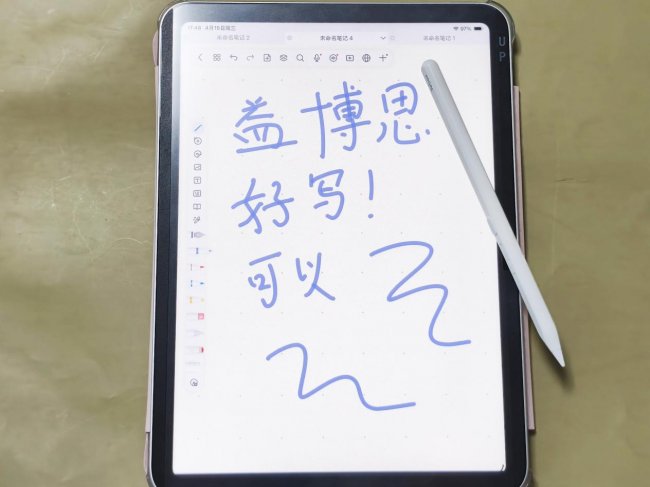 17:48 4月15日周三
97%
未命名笔记 2
未命名笔记 4
未命名笔记 1
UP
益博思
好写!
可以